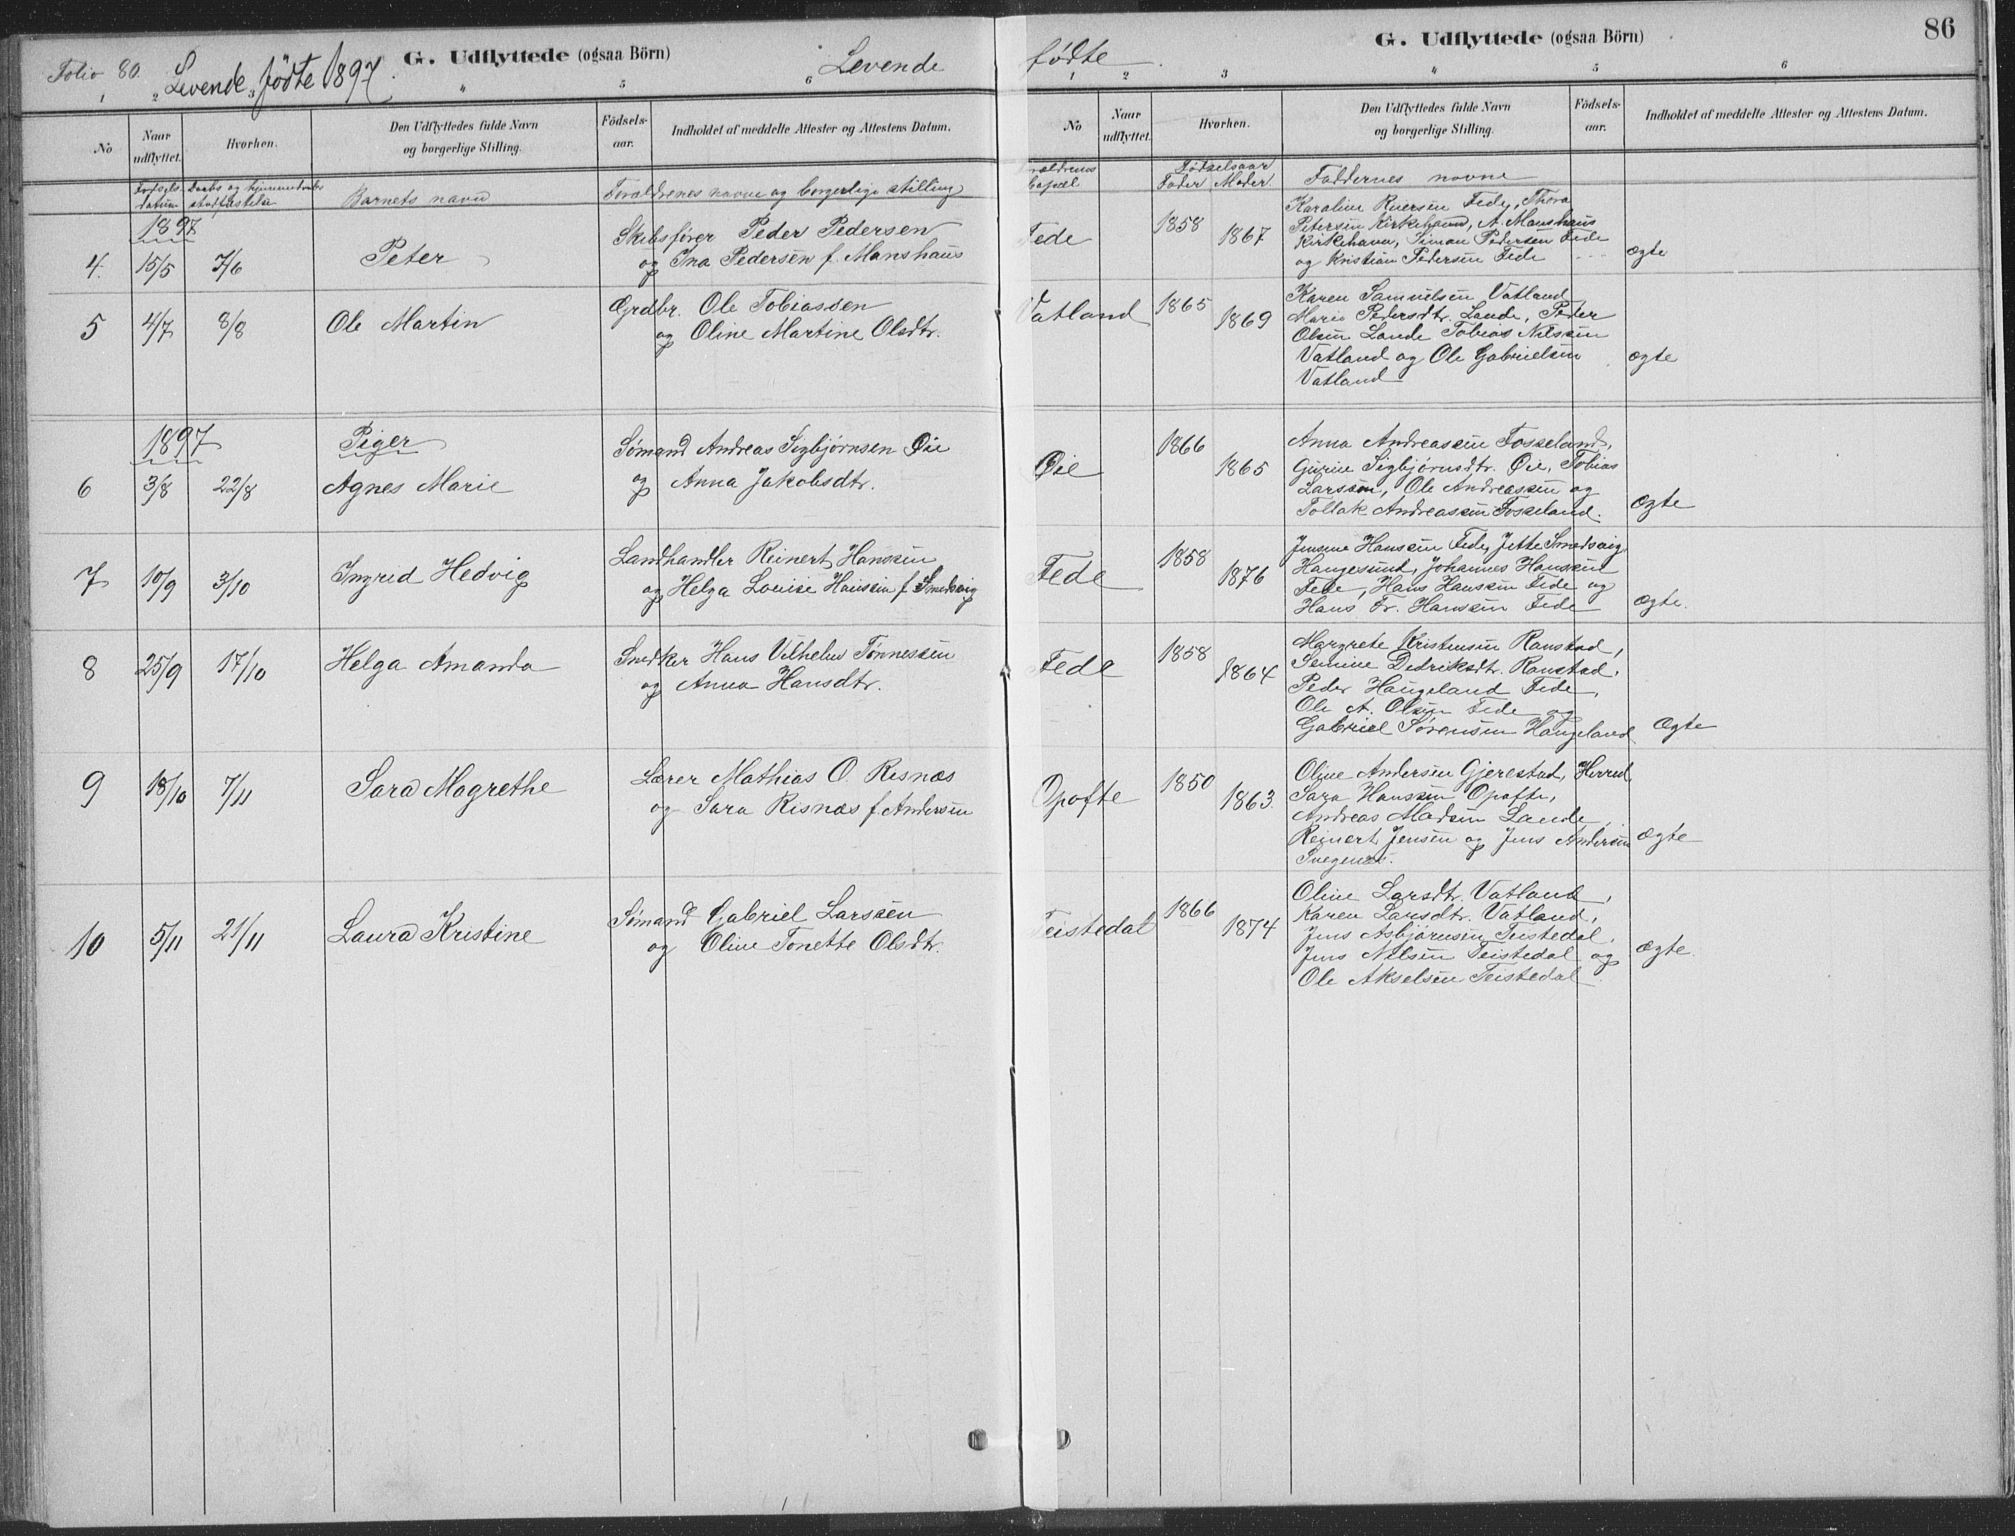 Folio 80.
Levende fødte 1897.
G. Udflyttede (ogsaa Börn)
Levende
1 2 3 4 5 6
No
Naar udflyttet.
Hvorhen.
Den Udflyttedes fulde Navn
og borgerlige Stilling.
Födsels-
aar.
Indholdet af meddelte Attester og Attestens Datum.
Fødsels
datum
Daabs og hjemmedaabs
stadfæstelse
Barnets navn
Forældrenes navne og borgerlige stilling
1897
4. 15/5 7/6 Peter
Skibsfører Peder Pedersen
og Ina Pedersen f. Manshaus
5 4/7 8/8 Ole Martin
Grdbr. Ole Tobiassen
og Oline Martine Olsdtr.
1897 Piger
6 3/8 22/8 Agnes Marie
Sømand Andreas Sigbjørnsen Øie
og Anna Jakobsdtr.
7 10/9 3/10 Ingrid Hedvig
Landhandler Reinert Hanssen
og Helga Louise Hanssen f. Smedsvig
8 25/9 17/10 Helga Amanda
Snedker Hans Vilhelm Tønnessen
og Anna Hansdtr.
9 18/10 7/11 Sara Magrethe
Lærer Mathias O. Risnæs
og Sara Risnæs f. Andersen
10 5/11 21/11 Laura Kristine
Sømand Gabriel Larssen
og Oline Tonette Olsdtr.
86
fødte
G. Udflyttede (ogsaa Börn)
1 2 3 4 5 6
No
Naar
udflyttet.
Hvorhen.
Den Udflyttedes fulde Navn
og borgerlige Stilling.
Födsels-
aar.
Indholdet af meddelte Attester og Attestens Datum.
Forældrenes
bopæl
Fødselsaar
Fader Moder
Faddernes navne
Fede 1858 1867
Karaline Reiersen Fede, Thora
Petersen Kirkehavn, A. Manshaus
Kirkehavn, Simon Pedersen Fede
og Kristian Pedersen Fede
ægte
Vatland 1865 1869
Karen Samuelsen Vatland
Marie Pedersdtr. Lande, Peder
Olsen Lande Tobias Nilssen
Vatland og Ole Gabrielsen
Vatland
ægte
Øie 1866 1865
Anna Andreassen Fosseland,
Gurine Sigbjørnsdtr. Øie, Tobias
Larssen, Ole Andreassen og
Tollak Andreassen Fosseland.
Ægte
Fede 1858 1876
Jensene Hanssen Fede, Jette Smedsvig
Haugesund, Johannes Hanssen
Fede, Hans Hanssen Fede og
Hans Fr. Hanssen Fede
Ægte.
Fede 1858 1864
Margrete Kristensen Ranstad,
Semine Dedriksdtr. Ranstad,
Peder Haugeland Fede,
Ole A. Olsen Fede og
Gabriel Sørensen Haugeland
Ægte
Opofte 1850 1863.
Oline Andersen Gjerestad, Herred
Sara Hanssen Opofte,
Andreas Madsen Lande,
Reinert Jensen og Jens Andersen
Ægte
Teistedal 1866 1874
Oline Larsdtr. Vatland,
Karen Larsdtr. Vatland,
Jens Asbjørnsen Teistedal,
Jens Nilsen Teistedal og
Ole Akselsen Teistedal
Ægte.